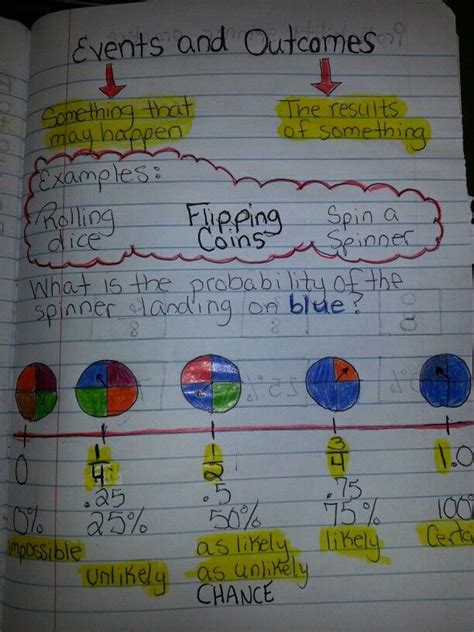 Events and Outcomes
Something that
may happen
The results
of something
Examples:
Rolling
dice
Flipping
Coins
Spin a
Spinner
What is the probability of the
spinner landing on blue?
0 1/4 1/2 3/4 1.0
.25 .5 .75
0% 25% 50% 75% 100
impossible
unlikely
as likely
as unlikely
CHANCE
likely
Certa